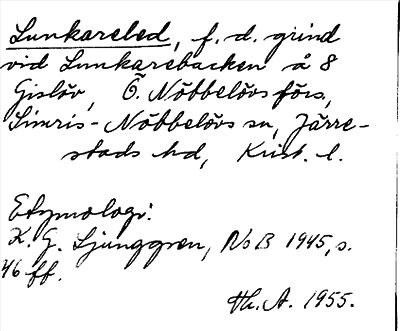 Lunkareled, f. d. grind
vid Lunkarebacken å 8
Gislöv, Ö. Nöbbelövs förs,
Simris-Nöbbelövs sn, Järre-
stads hd, Krist. l.
Etymologi:
K. G. Ljunggren, NoB 1945, s.
46 ff.
Th. A. 1955.